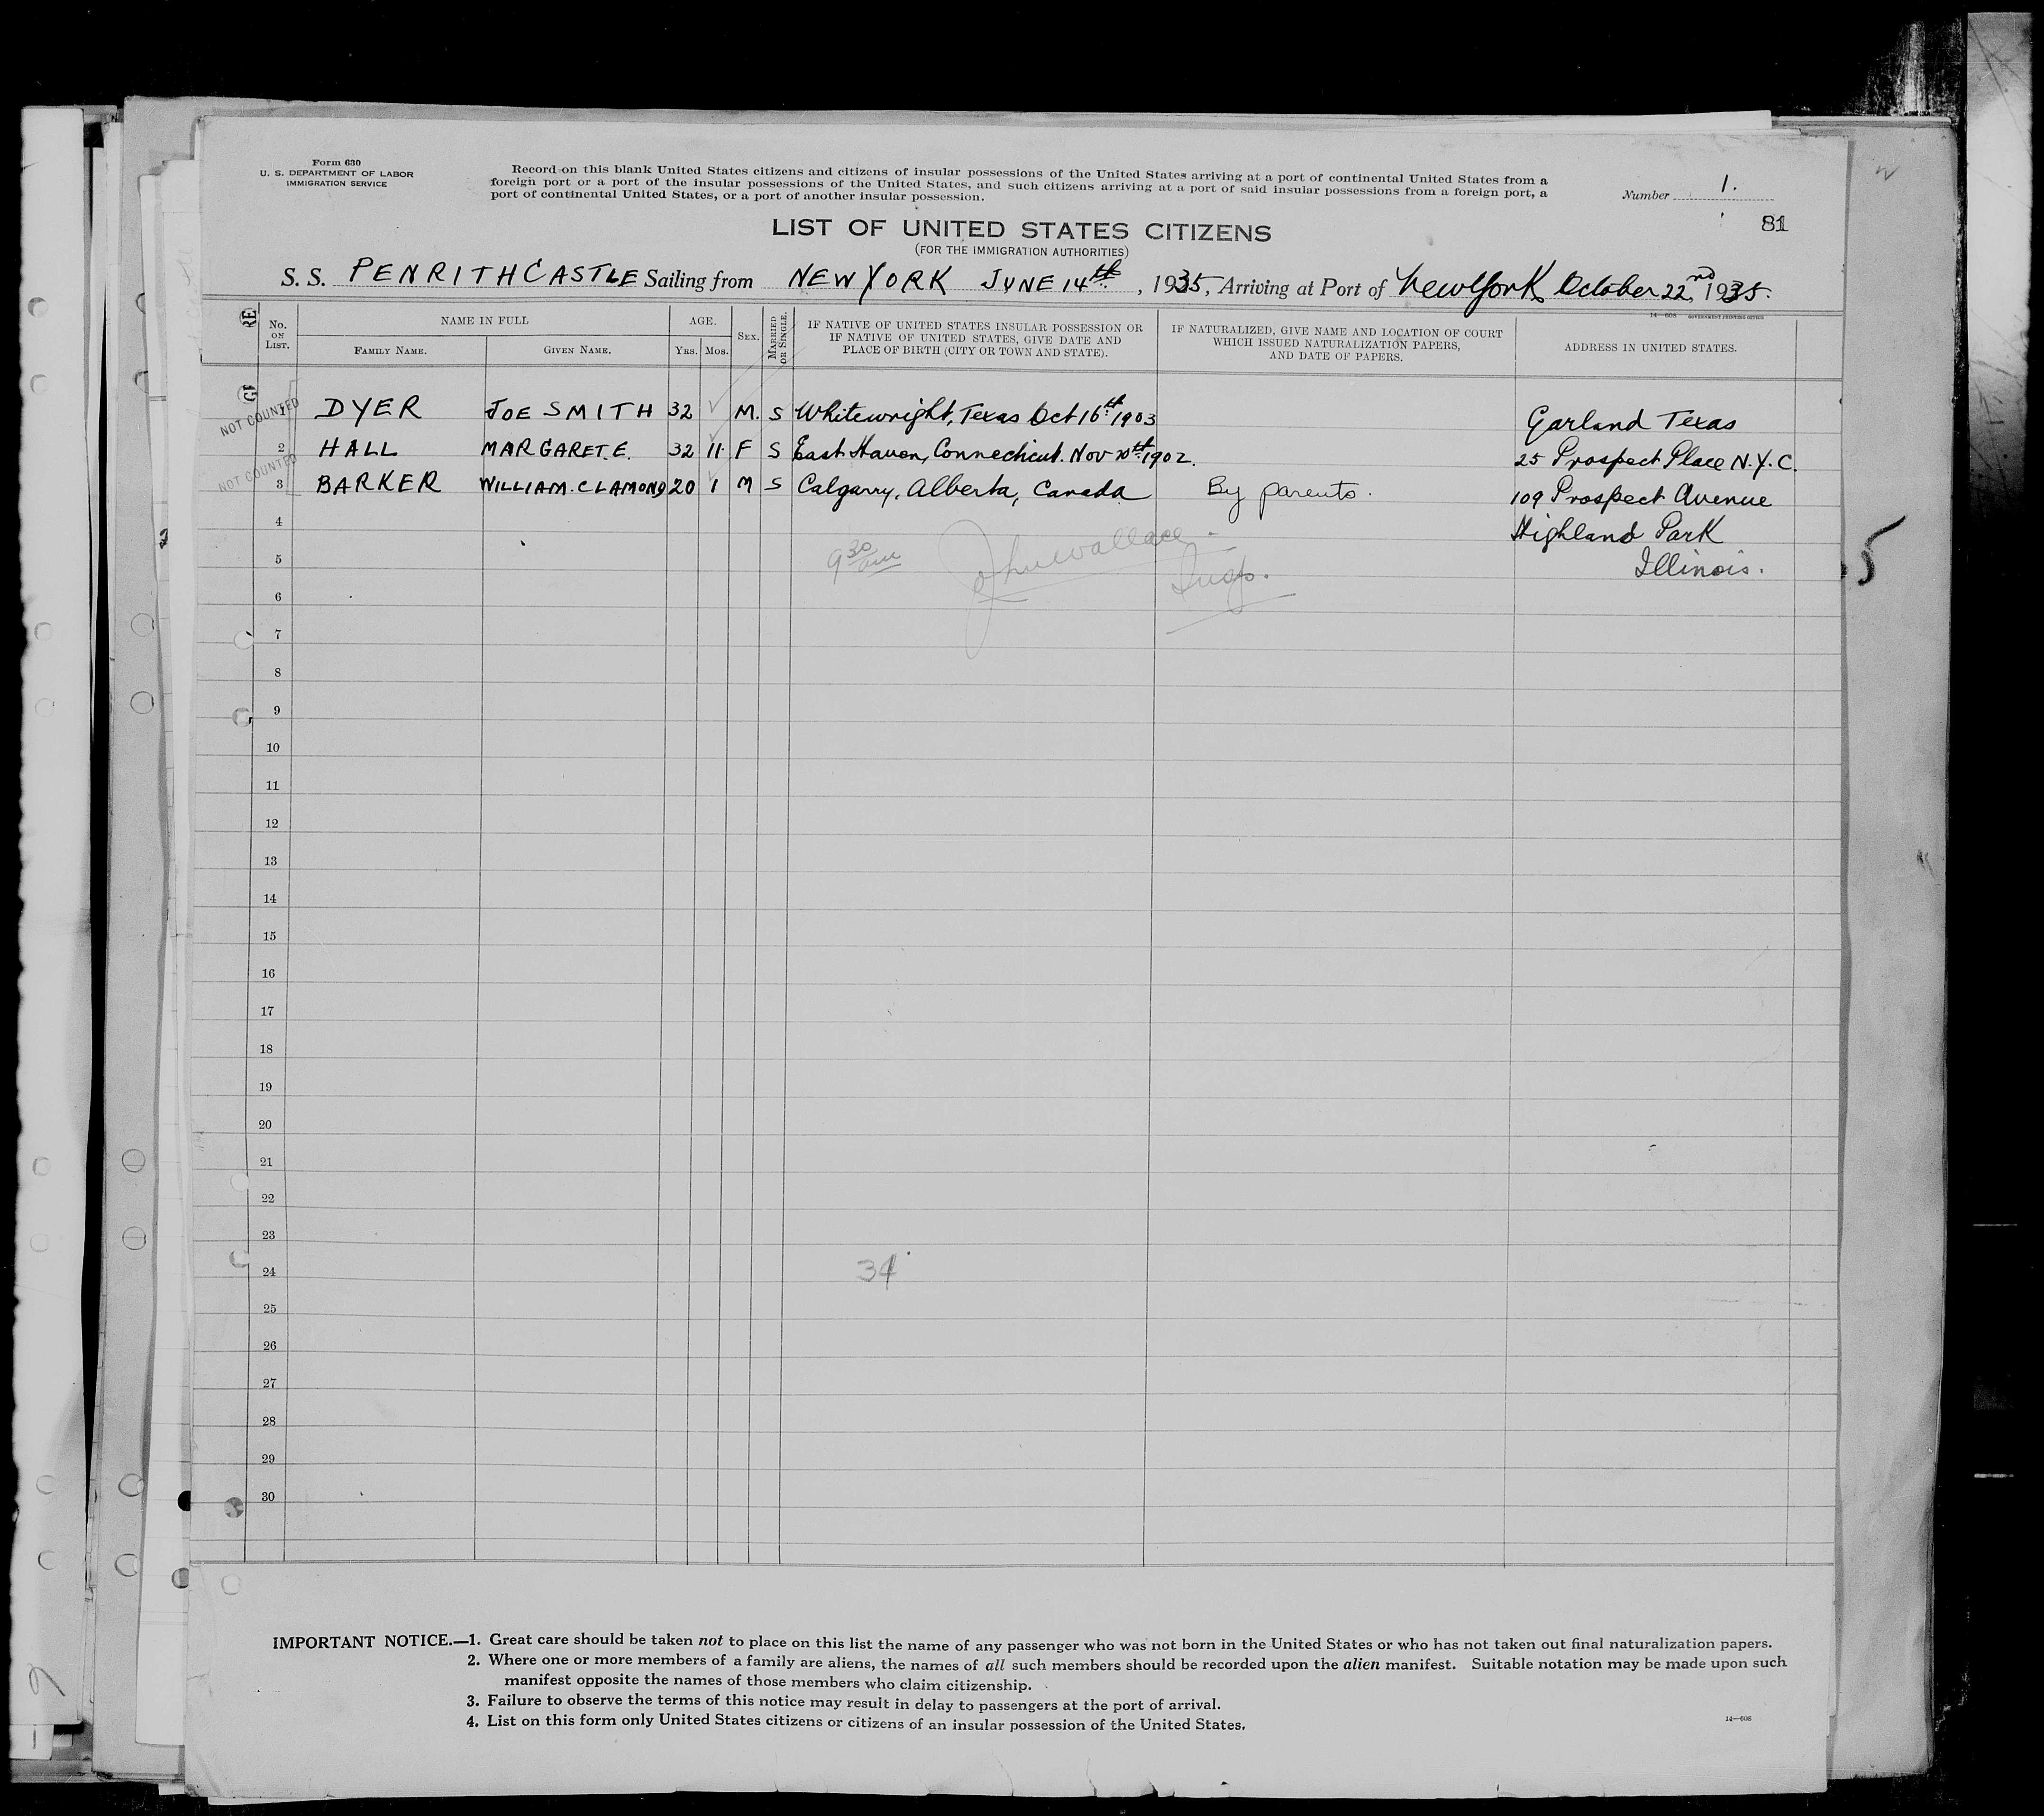 Form 630
U. S. DEPARTMENT OF LABOR
IMMIGRATION SERVICE
Record on this blank United States citizens and citizens of insular possessions of the United States arriving at a port of continental United States from a
foreign port or a port of the insular possessions of the United States, and such citizens arriving at a port of said insular possessions from a foreign port, a
port of continental United States, or a port of another insular possession.
Number 1.
81
LIST OF UNITED STATES CITIZENS
(FOR THE IMMIGRATION AUTHORITIES)
S. S. PENRITH CASTLE Sailing from NEW YORK JUNE 14th, 1935, Arriving at Port of New York October 22nd, 1935.
14-608 GOVERNMENT PRINTING OFFICE
No. ON LIST. NAME IN FULL FAMILY NAME. GIVEN NAME. AGE. YRS. MOS. SEX. MARRIED OR SINGLE. IF NATIVE OF UNITED STATES INSULAR POSSESSION OR IF NATIVE OF UNITED STATES, GIVE DATE AND PLACE OF BIRTH (CITY OR TOWN AND STATE). IF NATURALIZED, GIVE NAME AND LOCATION OF COURT WHICH ISSUED NATURALIZATION PAPERS, AND DATE OF PAPERS. ADDRESS IN UNITED STATES.
NOT COUNTED 1 DYER JOE SMITH 32 M. S Whitewright, Texas Oct 16th 1903 Garland Texas
2 HALL MARGARET. E. 32 11. F S East Haven, Connecticut. Nov 1902. 25 Prospect Place N.Y.C.
NOT COUNTED 3 BARKER WILLIAM. CLAMOND 20 1 M S Calgarry, Alberta, Canada By parents. 109 Prospect Avenue
4 Highland Park
5 Illinois.
9 30 am John Wallace Insp.
5
6
7
8
9
10
11
12
13
14
15
16
17
18
19
20
21
22
23
24 34
25
26
27
28
29
30
IMPORTANT NOTICE.—1. Great care should be taken not to place on this list the name of any passenger who was not born in the United States or who has not taken out final naturalization papers.
2. Where one or more members of a family are aliens, the names of all such members should be recorded upon the alien manifest. Suitable notation may be made upon such
manifest opposite the names of those members who claim citizenship.
3. Failure to observe the terms of this notice may result in delay to passengers at the port of arrival.
4. List on this form only United States citizens or citizens of an insular possession of the United States.
14-608